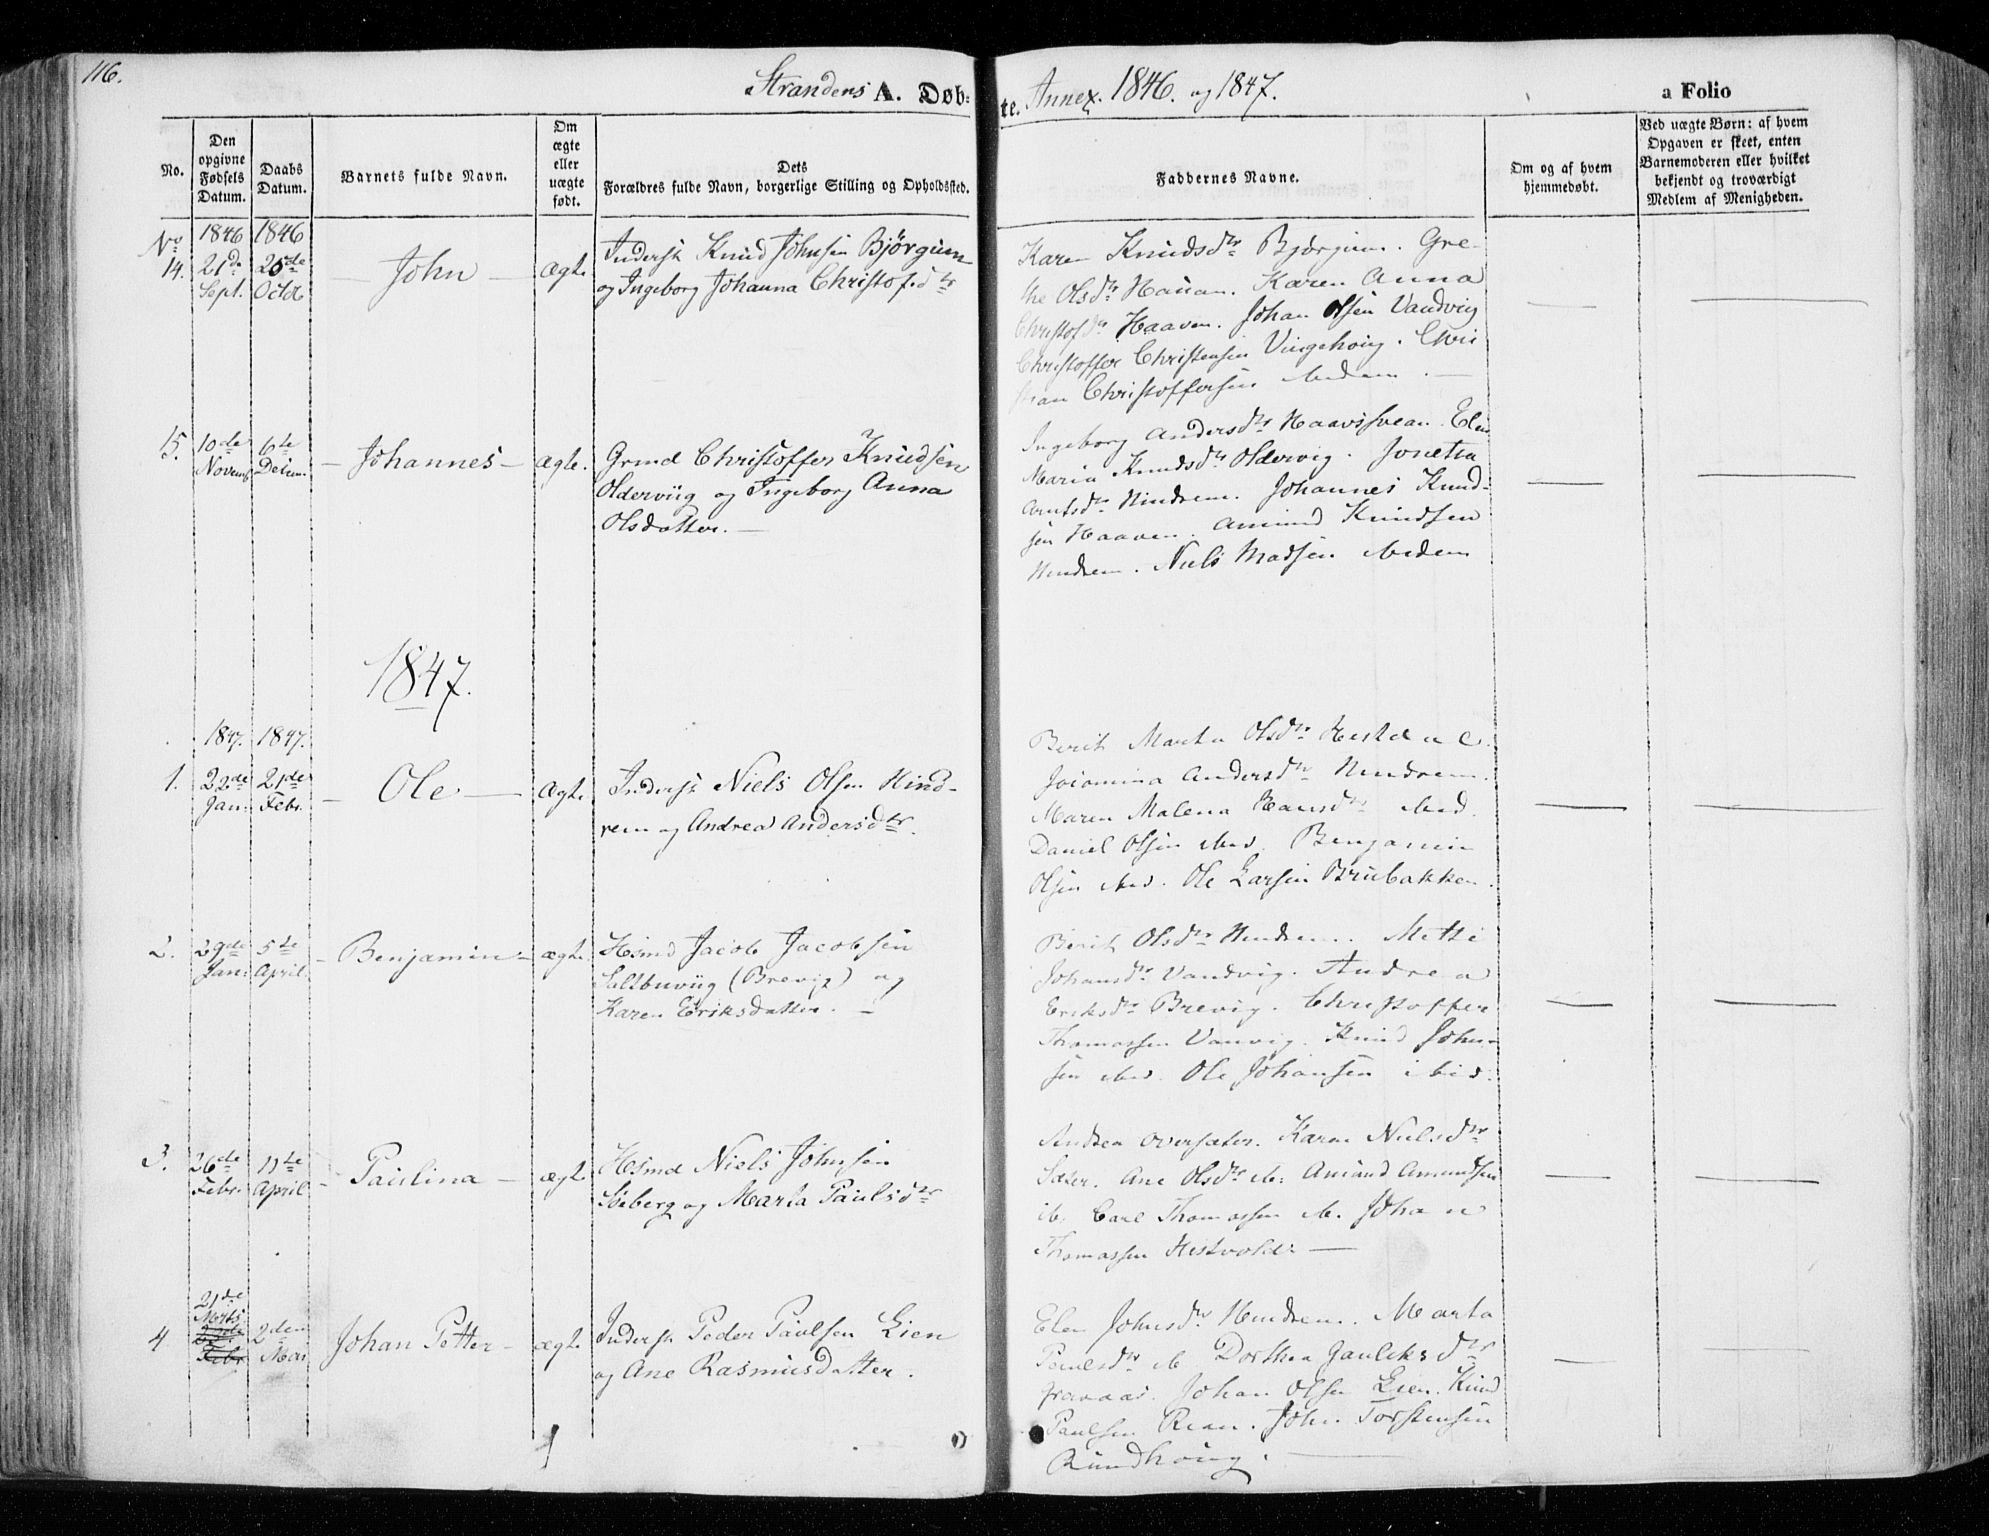 116.
Strandens A. Døb=
te. Annex. 1846. og 1847.
a Folio
No.
Den
opgivne
Fødsels
Datum.
Daabs
Datum.
Barnets fulde Navn.
Om
ægte
eller
uægte
født.
Dets
Forældres fulde Navn, borgerlige Stilling og Opholdssted.
Faddernes Navne.
Om og af hvem
hjemmedøbt.
Ved uægte Børn: af hvem
Opgaven er skeet, enten
Barnemoderen eller hvilket
bekjendt og troværdigt
Medlem af Menigheden.
No 1846 1846
14. 21de Sept. 25de Octob — John — ægte
Indersk Knud Johnsen Bjørgum
og Ingeborg Johanna Christofdtr
Karen Knudsdtr Bjørgum. Gre-
the Olsdtr Hauan. Karen Anna
Christofdtr Haaven. Johan Olsen Vandvig
Christoffer Christensen Vingehøug. Chri
stian Christoffersen ibidem. —
15. 10de Novemb 6te Decem. — Johannes — ægte.
Grmd Christoffer Knudsen
Oldervüg og Ingeborg Anna
Olsdatter. —
Ingeborg Andersdtr Haavisvean. Elen
Maria Knudsdtr Oldervig. Jonetta
Arntsdtr Hindrem. Johannes Knud-
sen Haaven. Amund Knudsen
Hindrem. Niels Madsen ibidem
1847.
1847. 1847.
1. 22de Jan: 21de Febr. — Ole — ægte
Indersk Niels Olsen Hind-
rem og Andrea Andersdtr.
Berit Marta Olsdtr Hestdal.
Andersdtr Hindrem.
Maren Malena Hansdtr ibid.
Daniel Olsen ibid. Benjamin
Olsen ibid. Ole Larsen Brubakken.
2. 29de Jan: 5te April. — Benjamin — ægte
Hsmd Jacob Jacobsen
Saltbuviig (Brevig) og
Karen Eriksdatter. —
Berit Olsdtr Hindrem. Metti
Johansdtr Vandvig. Andrea
Eriksdtr Brevig. Christoffer
Thomassen Vanvig. Knud John-
sen ibid. Ole Johansen ibid.
3. 26de Febr. 11te April — Paulina — ægte
Hsmd Niels Johnsen
Søeberg og Marta Paulsdtr
Andrea Oversæter. Karen Nielsdtr
Sæter. Ane Olsdtr ib: Amund Amundsen
ib. Carl Thomassen ib. Johan
Thomassen Hestvolds —
4 21de Marts 2den Mai Johan Petter — ægte
Indersk Peder Paulsen Lien
og Ane Rasmusdatter.
Elen Johnsdtr Hindrem. Marta
Paulsdtr ib. Dorthea
Johan Olsen Lien. Knud
Paulsen Rian. John Torstensen
Rundhoug. —